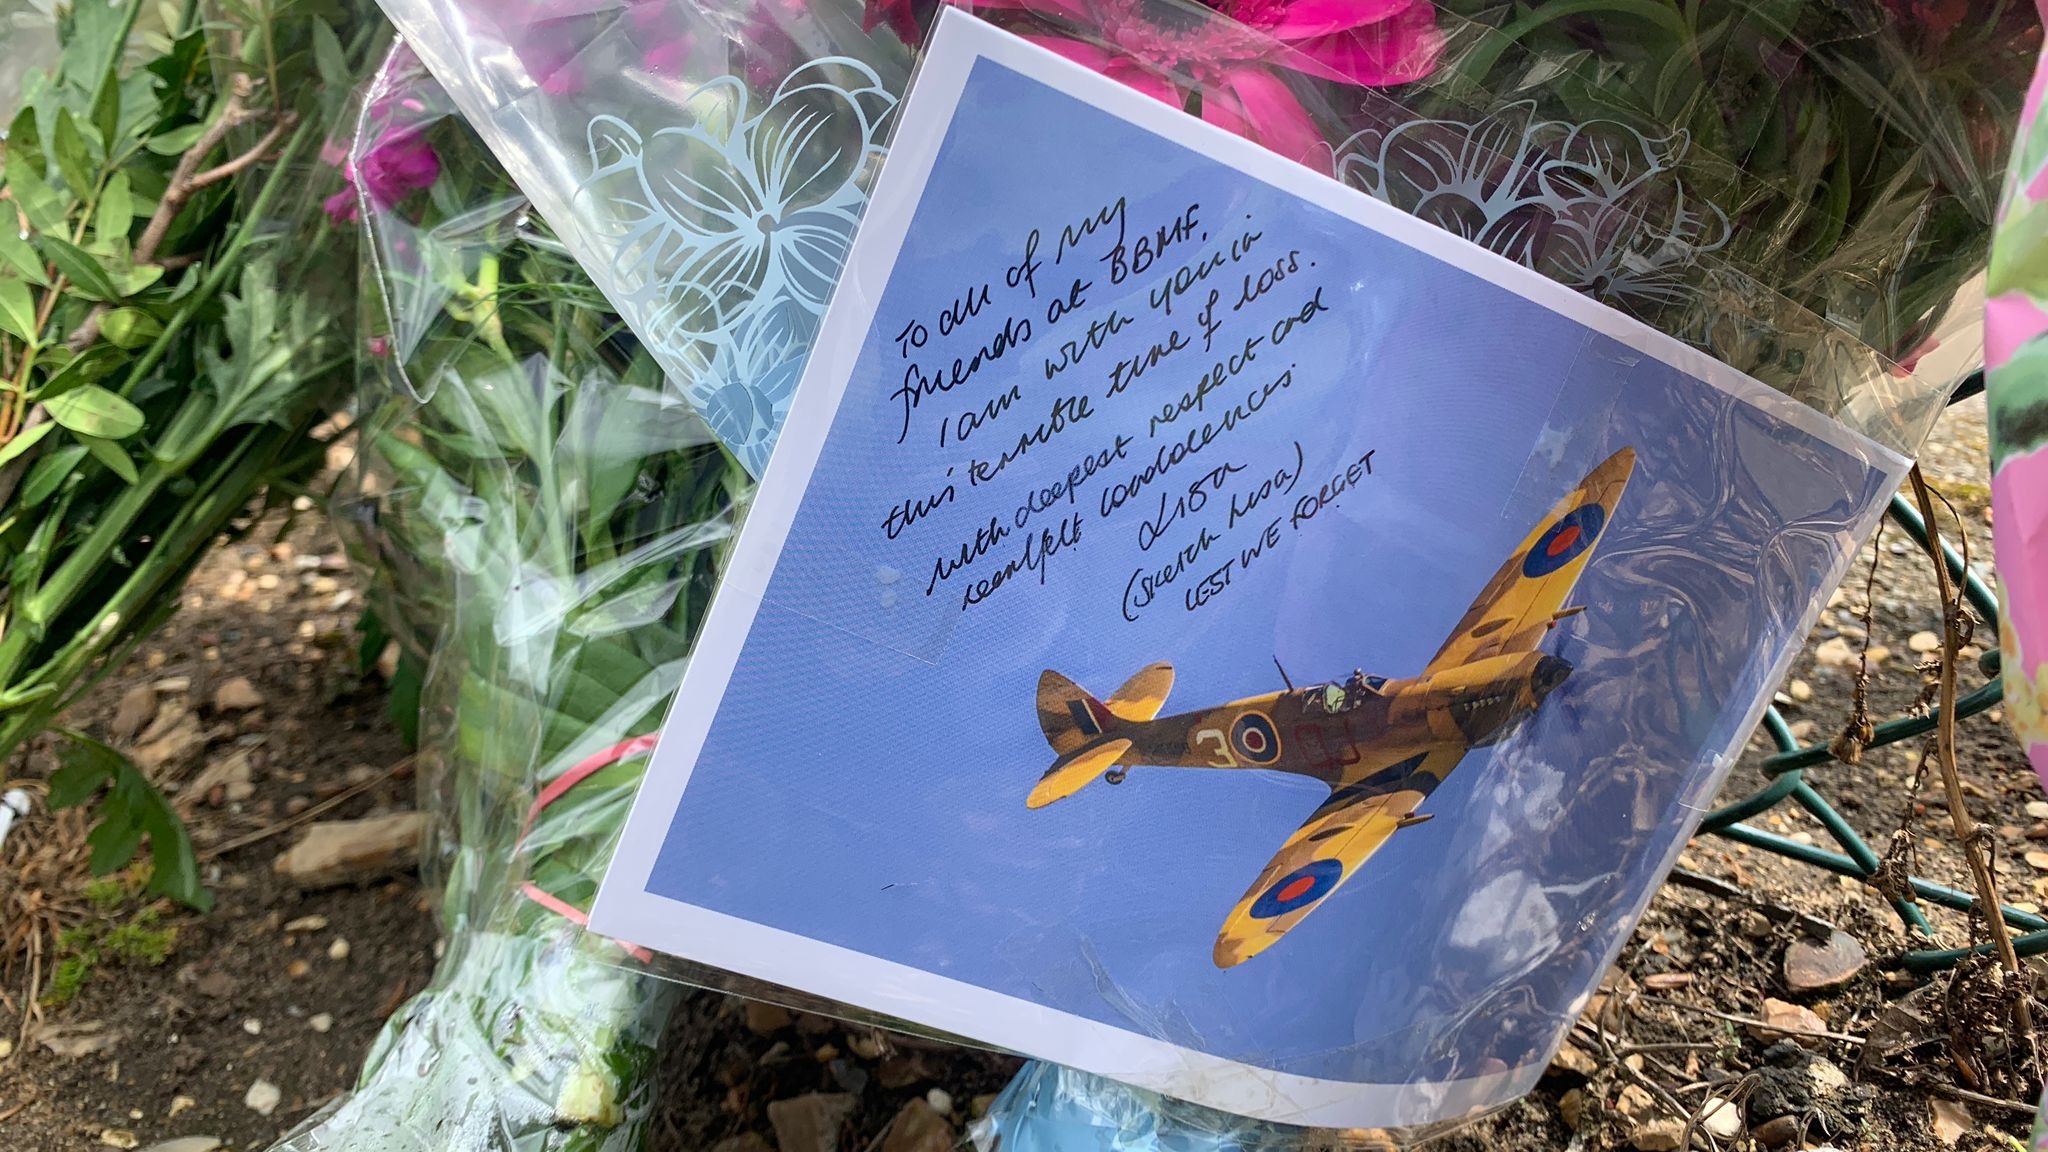 To all of my
friends at BBMF.
I am with you in
this terrible time of loss.
with deepest respect and
heartfelt condolences.
Lisa
(Sketch Lisa)
LEST WE FORGET
3